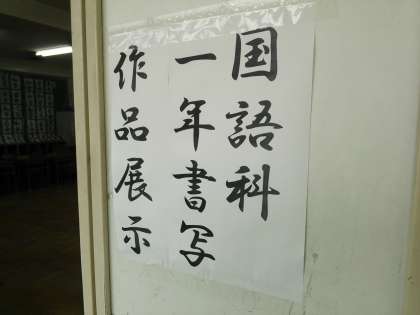 国語科
一年書写
作品展示